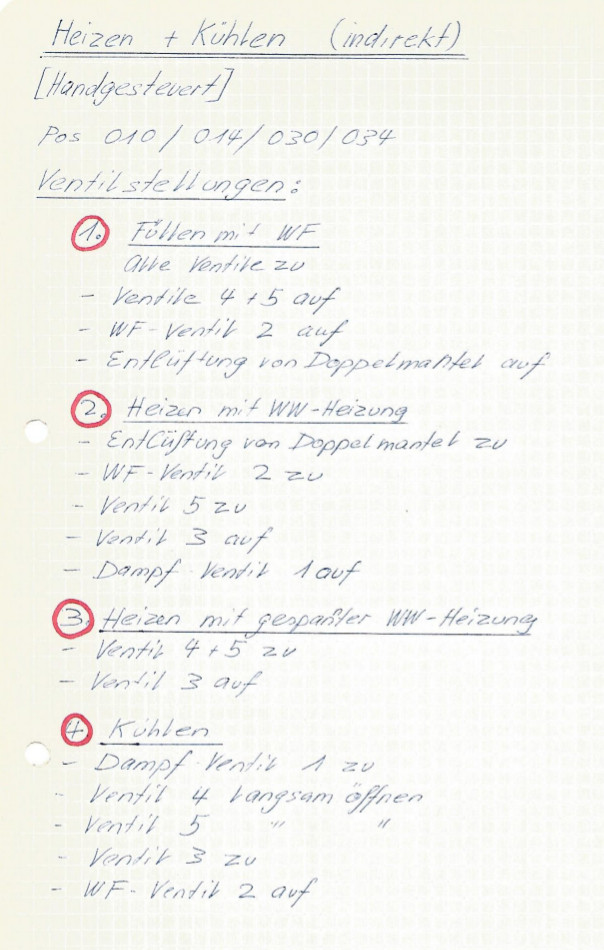 Heizen + Kühlen (indirekt)
[Handgesteuert]
Pos 010 / 014 / 030 / 034
Ventilstellungen:
1. Füllen mit WF
Alle Ventile zu
- Ventile 4 + 5 auf
- WF-Ventil 2 auf
- Entlüftung von Doppelmantel auf
2. Heizen mit WW-Heizung
- Entlüftung von Doppelmantel zu
- WF-Ventil 2 zu
- Ventil 5 zu
- Ventil 3 auf
- Dampf-Ventil 1 auf
3. Heizen mit gespañter WW-Heizung
- Ventil 4 + 5 zu
- Ventil 3 auf
4. Kühlen
- Dampf-Ventil 1 zu
- Ventil 4 langsam öffnen
- Ventil 5 " "
- Ventil 3 zu
- WF-Ventil 2 auf